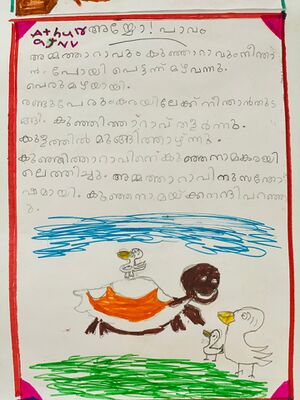 Athul
അയ്യോ! പാവം
അമ്മത്താറാവും കുഞ്ഞാറാവും നീന്താ
ൻ പോയി പെട്ടന്ന് മഴവന്നു.
പെരുമഴയായി.
രണ്ടുപേരും കരയിലേക്ക് നീന്താൻതുട
ങ്ങി. കുഞ്ഞിത്താറാവ് തളർന്നു.
കുളത്തിൽ മുങ്ങിത്താഴ്ന്നു.
കുഞ്ഞിത്താറാവിനെ കുഞ്ഞനാമകരയി
ലെത്തിച്ചു. അമ്മത്താറാവിനു സന്തോ
ഷമായി. കുഞ്ഞനാമയ്ക്കുനന്ദിപറഞ്ഞ
ു.